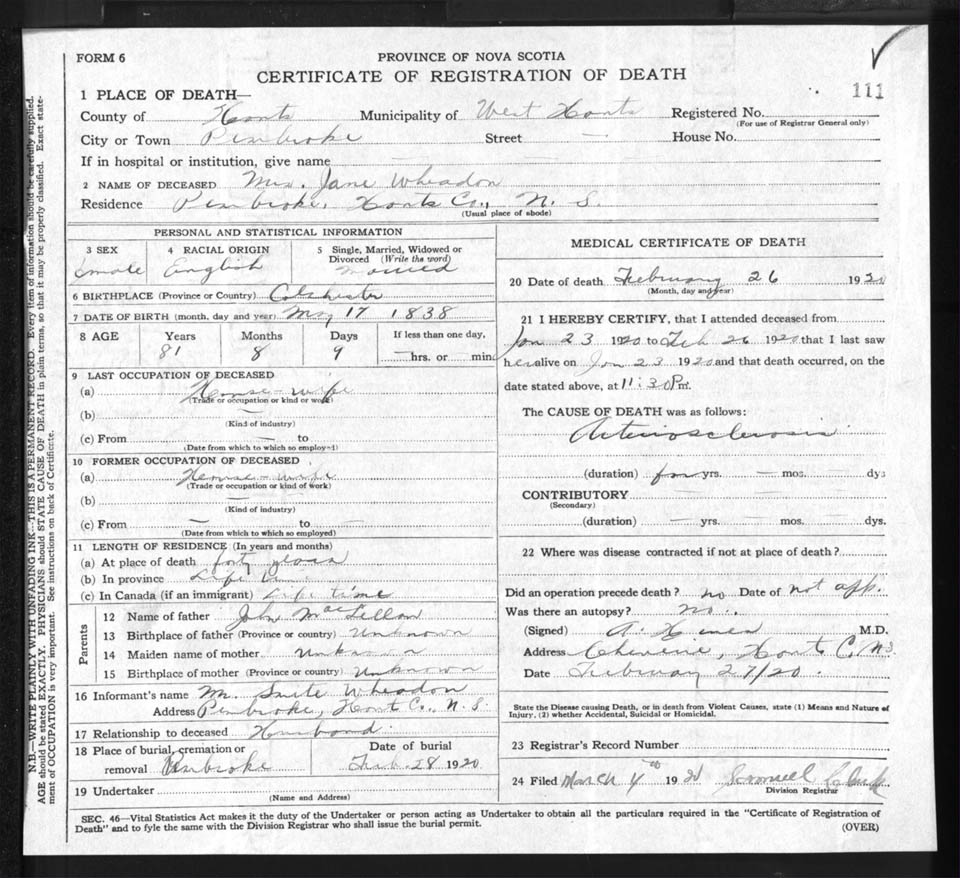 FORM 6
PROVINCE OF NOVA SCOTIA
CERTIFICATE OF REGISTRATION OF DEATH
111
1 PLACE OF DEATH—
County of Hants Municipality of West Hants Registered No.
(For use of Registrar General only)
City or Town Pembroke Street — House No.
If in hospital or institution, give name
2 NAME OF DECEASED Mrs. Jane Wheadon
Residence Pembroke, Hants Co., N. S.
(Usual place of abode)
PERSONAL AND STATISTICAL INFORMATION
3 SEX 4 RACIAL ORIGIN 5 Single, Married, Widowed or Divorced (Write the word)
English married
6 BIRTHPLACE (Province or Country) Colchester
7 DATE OF BIRTH (month, day and year) May 17 1838
8 AGE Years Months Days If less than one day,
81 8 9 —hrs. or — min.
9 LAST OCCUPATION OF DECEASED
(a) House-wife
(Trade or occupation or kind or work)
(b) —
(Kind of industry)
(c) From — to
(Date from which to which so employed)
10 FORMER OCCUPATION OF DECEASED
(a) House-wife
(Trade or occupation or kind of work)
(b) —
(Kind of industry)
(c) From — to —
(Date from which to which so employed)
11 LENGTH OF RESIDENCE (In years and months)
(a) At place of death forty years
(b) In province Life
(c) In Canada (if an immigrant) Life time
Parents
12 Name of father John MacLellan
13 Birthplace of father (Province or country) Unknown
14 Maiden name of mother Unknown
15 Birthplace of mother (Province or country) Unknown
16 Informant's name Mr. Wheadon
Address Pembroke, Hants Co., N. S.
17 Relationship to deceased Husband
18 Place of burial, cremation or removal Pembroke
Date of burial
Feb. 28 1920
19 Undertaker
(Name and Address)
MEDICAL CERTIFICATE OF DEATH
20 Date of death February 26 1920
(Month, day and year)
21 I HEREBY CERTIFY, that I attended deceased from
Jan 23 1920 to Feb 26 1920 that I last saw
her alive on Jan 23 1920 and that death occurred, on the
date stated above, at 11:30 P.m.
The CAUSE OF DEATH was as follows:
Arteriosclerosis
(duration) yrs. — mos. — dys
CONTRIBUTORY —
(Secondary)
(duration) — yrs. — mos. — dys.
22 Where was disease contracted if not at place of death?
Did an operation precede death? no Date of not app.
Was there an autopsy? no.
(Signed) A. M.D.
Address Cheverie, Hants C. N.S
Date February 27/20.
State the Disease causing Death, or in death from Violent Causes, state (1) Means and Nature of
Injury, (2) whether Accidental, Suicidal or Homicidal.
23 Registrar's Record Number
24 Filed March 4th 1920 Samuel
Division Registrar
SEC. 46—Vital Statistics Act makes it the duty of the Undertaker or person acting as Undertaker to obtain all the particulars required in the "Certificate of Registration of
Death" and to fyle the same with the Division Registrar who shall issue the burial permit.
(OVER)
N.B.—WRITE PLAINLY WITH UNFADING INK—THIS IS A PERMANENT RECORD. Every item of information should be carefully supplied.
AGE should be stated EXACTLY. PHYSICIANS should STATE CAUSE OF DEATH in plain terms, so that it may be properly classified. Exact state-
ment of OCCUPATION is very important. See instructions on back of Certificate.